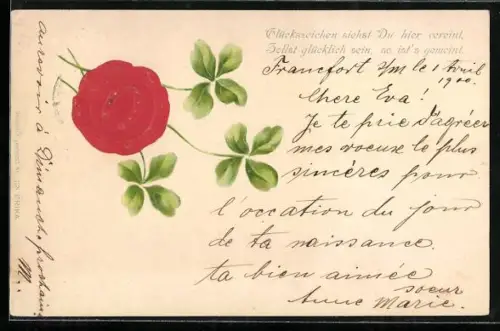 Glückszeichen siehst Du hier vereint,
Sollst glücklich sein, so ist's gemeint.
Francfort s/m le 1 Avril
1900.
Chere Eva!
Je te prie d'agréer
mes voeux le plus
sincères pour
l'occation du jour
de ta naissance.
ta bien aimée
soeur
Anne Marie.
aurevoir à
Dimanche prochain
M..